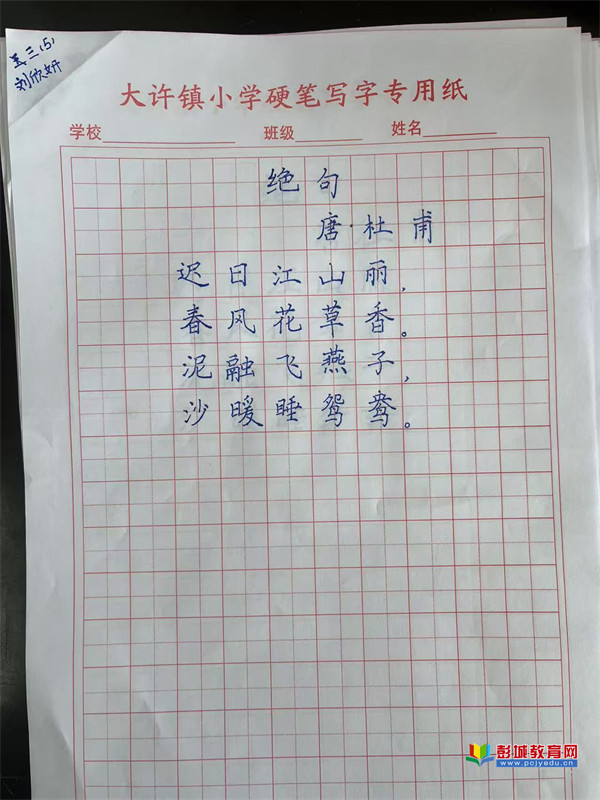 三(5)
刘欣妍
大许镇小学硬笔写字专用纸
学校 班级 姓名
绝句
唐·杜甫
迟日江山丽,
春风花草香。
泥融飞燕子,
沙暖睡鸳鸯。
彭城教育网
www.pcjyedu.cn